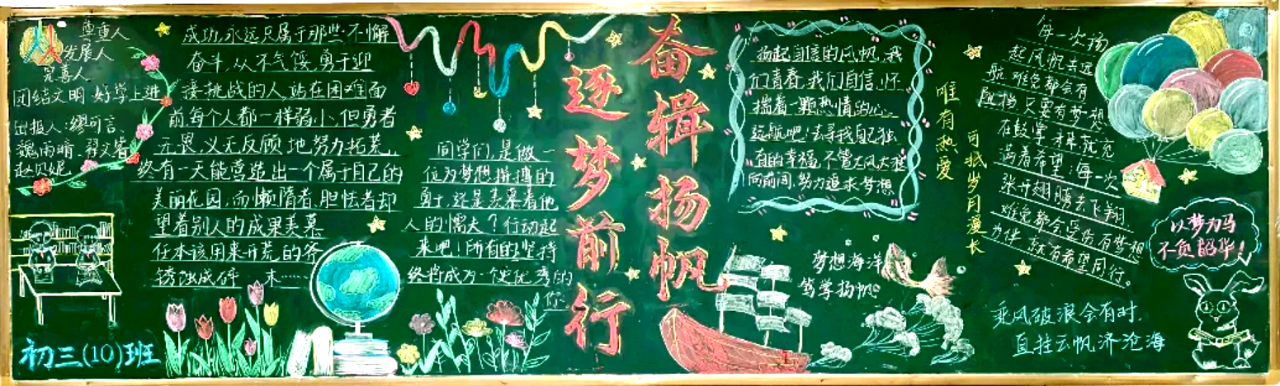 尊重人
发展人
完善人
团结文明 好学上进
出报人：缪可言
魏雨晴 翟文睿
赵贝妮
初三(10)班
成功,永远只属于那些不懈
奋斗,从不气馁,勇于迎
接挑战的人,站在困难面
前每个人都一样弱小,但勇者
无畏,义无反顾地努力拓荒,
终有一天能营造出一个属于自己的
美丽花园,而懒惰者、胆怯者却
望着别人的成果羡慕
任本该用来开荒的斧
锈蚀成碎末……
同学们,是做一
位为梦想拼搏的
勇士,还是羡慕着他
人的懦夫?行动起
来吧!所有的坚持
终将成为一个更优秀的
你
奋楫扬帆
逐梦前行
扬起自信的风帆,我
们青春,我们自信,怀
揣着一颗热情的心,
远航吧!去寻找自己独
有的幸福,不管大风大浪
向前闯,努力追求梦想
梦想海洋
笃学扬帆
唯有热爱
可抵岁月漫长
每一次扬
起风帆去远
航,难免都会有
阻挡,只要有梦想
在鼓掌,未来就充
满着希望,每一次
张开翅膀去飞翔
难免都会受伤,有梦想
为伴,就有希望同行。
以梦为马
不负韶华!
乘风破浪会有时,
直挂云帆济沧海